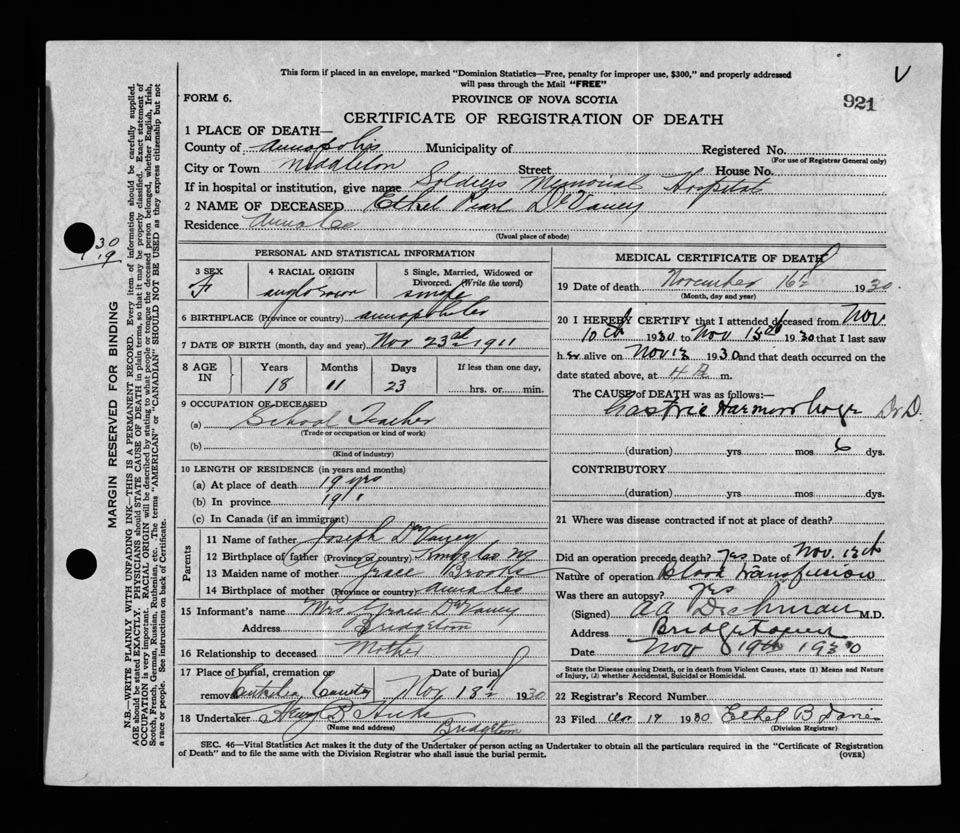 This form if placed in an envelope, marked "Dominion Statistics—Free, penalty for improper use, $300," and properly addressed
will pass through the Mail "FREE"
V
FORM 6.
PROVINCE OF NOVA SCOTIA
921
CERTIFICATE OF REGISTRATION OF DEATH
1 PLACE OF DEATH—
County of Annapolis Municipality of Registered No.
(For use of Registrar General only)
City or Town Middleton Street House No.
If in hospital or institution, give name Soldiers Memorial Hospital
2 NAME OF DECEASED Ethel Pearl DeVaney
Residence Anna Co
(Usual place of abode)
30
19
MARGIN RESERVED FOR BINDING
N.B.—WRITE PLAINLY WITH UNFADING INK—THIS IS A PERMANENT RECORD. Every item of information should be carefully supplied.
AGE should be stated EXACTLY. PHYSICIANS should STATE CAUSE OF DEATH in plain terms, so that it may be properly classified. Exact statement of
OCCUPATION is very important. RACIAL ORIGIN will be described by stating to what people or tongue the deceased person belonged, whether English, Irish,
Scotch, French, German, Russian, Ruthenian, etc. The terms "AMERICAN" or "CANADIAN" SHOULD NOT BE USED as they express citizenship but not
a race or people. See instructions on back of Certificate.
PERSONAL AND STATISTICAL INFORMATION
3 SEX
F
4 RACIAL ORIGIN
5 Single, Married, Widowed or
Divorced. (Write the word)
single
6 BIRTHPLACE (Province or country) Annapolis Co
7 DATE OF BIRTH (month, day and year) Nov 23rd 1911
8 AGE
IN
Years Months Days If less than one day,
18 11 23 hrs. or min.
9 OCCUPATION OF DECEASED
(a) School Teacher
(Trade or occupation or kind of work)
(b)
(Kind of industry)
10 LENGTH OF RESIDENCE (in years and months)
(a) At place of death 19 yrs
(b) In province 19 "
(c) In Canada (if an immigrant)
Parents
11 Name of father Joseph DeVaney
12 Birthplace of father (Province or country) Kings Co NS
13 Maiden name of mother Grace Brooks
14 Birthplace of mother (Province or country) Anna Co
15 Informant's name Mrs Grace DeVaney
Address Bridgetown
16 Relationship to deceased Mother
17 Place of burial, cremation or Date of burial
removal County Nov 18th 1930
18 Undertaker Hicks
(Name and address) Bridgetown
MEDICAL CERTIFICATE OF DEATH
19 Date of death November 16th 1930
(Month, day and year)
20 I HEREBY CERTIFY that I attended deceased from Nov
10th 1930 to Nov 15th 1930 that I last saw
her alive on Nov 1930 and that death occurred on the
date stated above, at 4 a m.
The CAUSE of DEATH was as follows:—
Gastric Harmorrhage
(duration) yrs mos 6 dys.
CONTRIBUTORY
(duration) yrs mos dys.
21 Where was disease contracted if not at place of death?
Did an operation precede death? Yes Date of Nov.
Nature of operation Blood transfusion
Was there an autopsy? Yes
(Signed) A A Dechman M.D.
Address Bridgetown
Date Nov 19th 1930
State the Disease causing Death, or in death from Violent Causes, state (1) Means and Nature
of Injury, (2) whether Accidental, Suicidal or Homicidal.
22 Registrar's Record Number
23 Filed Nov 19 1930 Ethel B Davies
(Division Registrar)
SEC. 46—Vital Statistics Act makes it the duty of the Undertaker or person acting as Undertaker to obtain all the particulars required in the "Certificate of Registration
of Death" and to file the same with the Division Registrar who shall issue the burial permit.
(OVER)